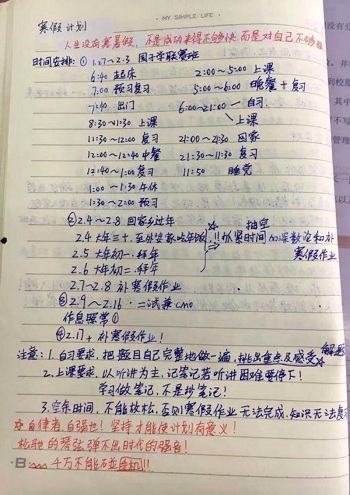 MY SIMPLE LIFE
寒假 计划
人生没有寒暑假，不是成功来得不够快 而是对自己不够狠
时间安排: ① 1.27~2.3 国子学联赛班
6:40 起床 2:00~5:00 上课
7:00 预习复习 5:00~6:00 晚餐+复习
7:40 出门 6:00~21:00 自习
上课
8:30~11:30 上课
11:30~12:00 复习 21:00~21:30 回家
12:00~12:40 中餐 21:30~11:30 复习
12:40~1:00 复习 11:50 睡觉
1:00~1:30 午休
1:30~2:00 预习
② 2.4~2.8 回家乡过年
2.4 大年三十，至外婆家吃年饭
2.5 大年初一 拜年
2.6 大年初二 拜年
抽空
!!抓紧时间 和补
寒假作业
2.7~2.8 补寒假作业
③ 2.9~2.16 二试兼cmo
作息照常①
④ 2.17+ 补寒假作业!
注意: 1. 自习要求，把题目自己完整地做一遍，挑出重点及感受
2. 上课要求，以听讲为主，记笔记若听讲困难要停下!
学习做笔记，不是抄笔记!
3. 空余时间，不能放松，否则寒假作业 无法完成，知识无法复习
自律者，自强也! 坚持才能使计划有意义!
松弛的琴弦弹不出时代的强音!
千万不能碰手机!!